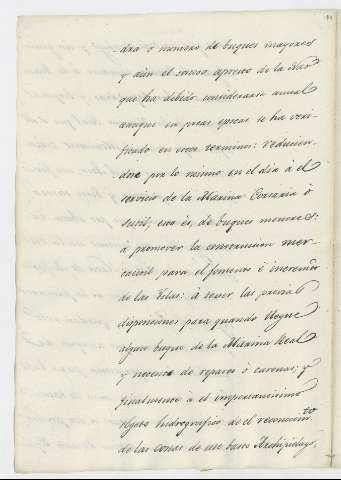 dra ó numero de buques mayores
y aún el corso, apresto de la Nao
que ha debido considerarse anual
aunque en pocas epocas se ha veri-
ficado en estos terminos: reducien-
dose por lo mismo en el dia á el
servicio de la Marina Corsaria ó
sutil, esto és, de buques menores:
á promover la construccion mer-
cantil para el fomento é incremto
de las Yslas: á tener las precisas
disposiciones para quando llegue
algun buque de la Marina Real
y necesite de reparos ó carenas; y
finalmente á el importantisimo
objeto hidrografico de el reconocimto
de las costas de ese basto Archipielago,